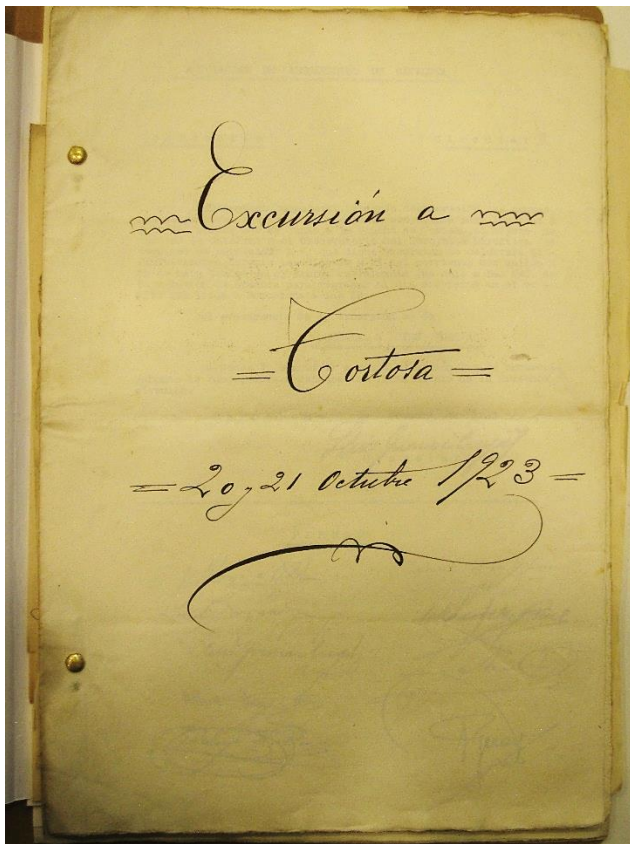 Excursión a
= Tortosa =
= 20 y 21 Octubre 1923 =